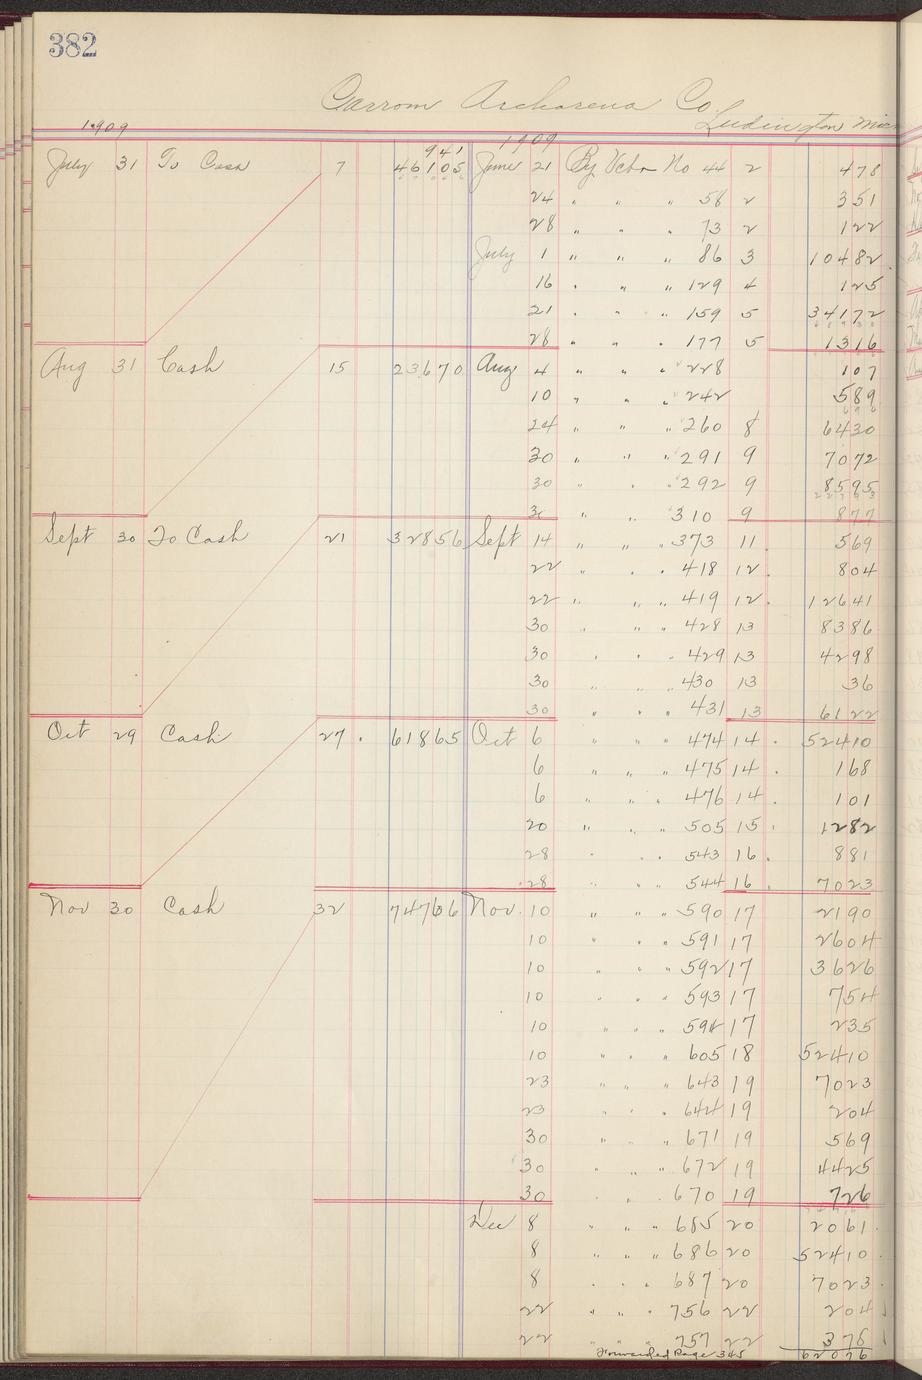 382
Carrom Archarena Co.
Ludington Mich
1909
1909
941
July 31 To Cash 7 46105 June 21 By Vchr No 44 2 478
24 " " " 58 2 351
28 " " " 73 2 122
July 1 " " " 86 3 10482
16 " " " 129 4 125
21 " " " 159 5 34172
28 " " " 177 5 1316
Aug 31 Cash 15 23670 Aug 4 " " " 228 107
10 " " " 242 589
24 " " " 260 8 6430
30 " " " 291 9 7072
30 " " " 292 9 8595
31 " " 310 9 877
Sept 30 To Cash 21 32856 Sept 14 " " " 373 11 569
22 " " " 418 12 804
22 " " " 419 12 12641
30 " " " 428 13 8386
30 " " " 429 13 4298
30 " " " 430 13 36
30 " " " 431 13 6122
Oct 29 Cash 27 61865 Oct 6 " " " 474 14 52410
6 " " " 475 14 168
6 " " " 476 14 101
20 " " " 505 15 1282
28 " " " 543 16 881
28 " " " 544 16 7023
Nov 30 Cash 32 74766 Nov. 10 " " " 590 17 2190
10 " " " 591 17 2604
10 " " " 592 17 3626
10 " " " 593 17 754
10 " " " 594 17 235
10 " " " 605 18 52410
23 " " " 643 19 7023
23 " " " 644 19 204
30 " " " 671 19 569
30 " " " 672 19 4425
30 " " 670 19 726
Dec 8 " " " 685 20 2061
8 " " " 686 20 52410
8 " " " 687 20 7023
22 " " " 756 22 204
22 " " " 757 22 378
Forwarded Page 345 62076